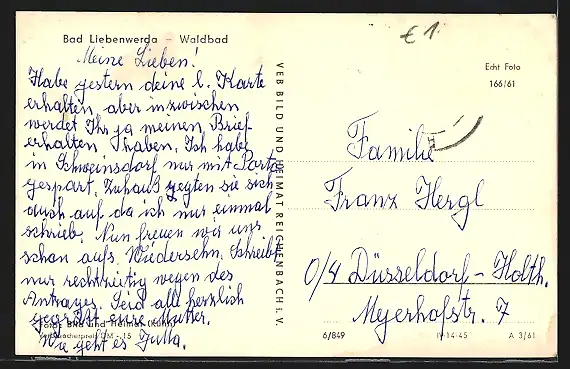 Bad Liebenwerda – Waldbad
Meine Lieben!
Habe gestern deine l. Karte
erhalten, aber inzwischen
werdet Ihr ja meinen Brief
erhalten haben. Ich habe
in Schweinsdorf nur mit Porto
gespart. Zuhaus regten sie sich
auch auf da ich nur einmal
schrieb. Nun freuen wir uns
schon aufs Wiedersehn. Schreibt
nur rechtzeitig wegen des
Antrages. Seid alle herzlich
gegrüßt eure Mutter.
Wie geht es Jutta.
Foto: Bild und Heimat (Kühn)
Verbraucherpreis DM -,15
VEB BILD UND HEIMAT REICHENBACH i. V.
€ 1
Echt Foto
166/61
Familie
Franz Hergl
0/4 Düsseldorf-Holth.
Meyerhofstr. 7
6/849
IV-14-45
A 3/61